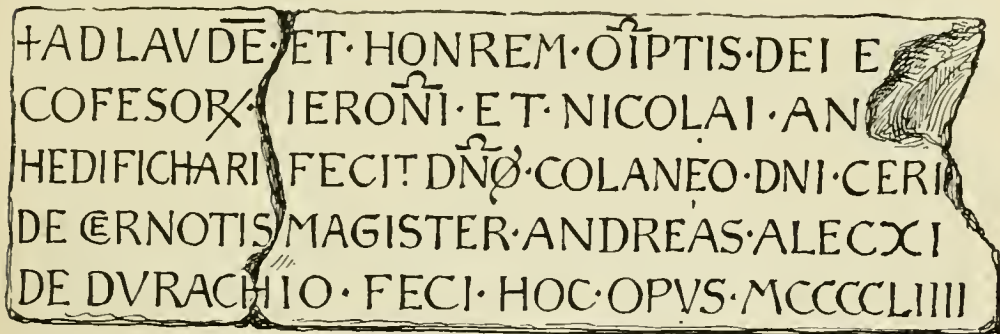 +AD LAVDE̅·ET·HONREM·OI̅PTIS·DEI E
COFESORꝶ·IERONI̅·ET·NICOLAI·AN
HEDIFICHARI FECIT DN̅O·COLANEO·DNI·CERI
DE CERNOTIS MAGISTER·ANDREAS·ALECXI
DE DVRACHIO·FECI·HOC·OPVS·MCCCCLIIII